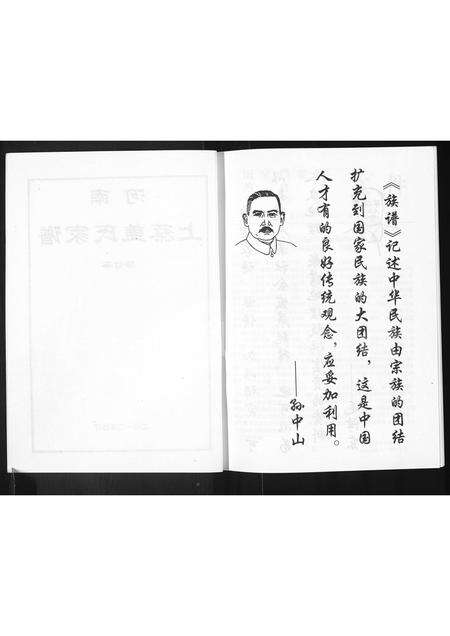 《族谱》记述中华民族由宗族的团结
扩充到国家民族的大团结，这是中国
人才有的良好传统观念，应妥加利用。
——孙中山
河南
上蔡
氏家谱